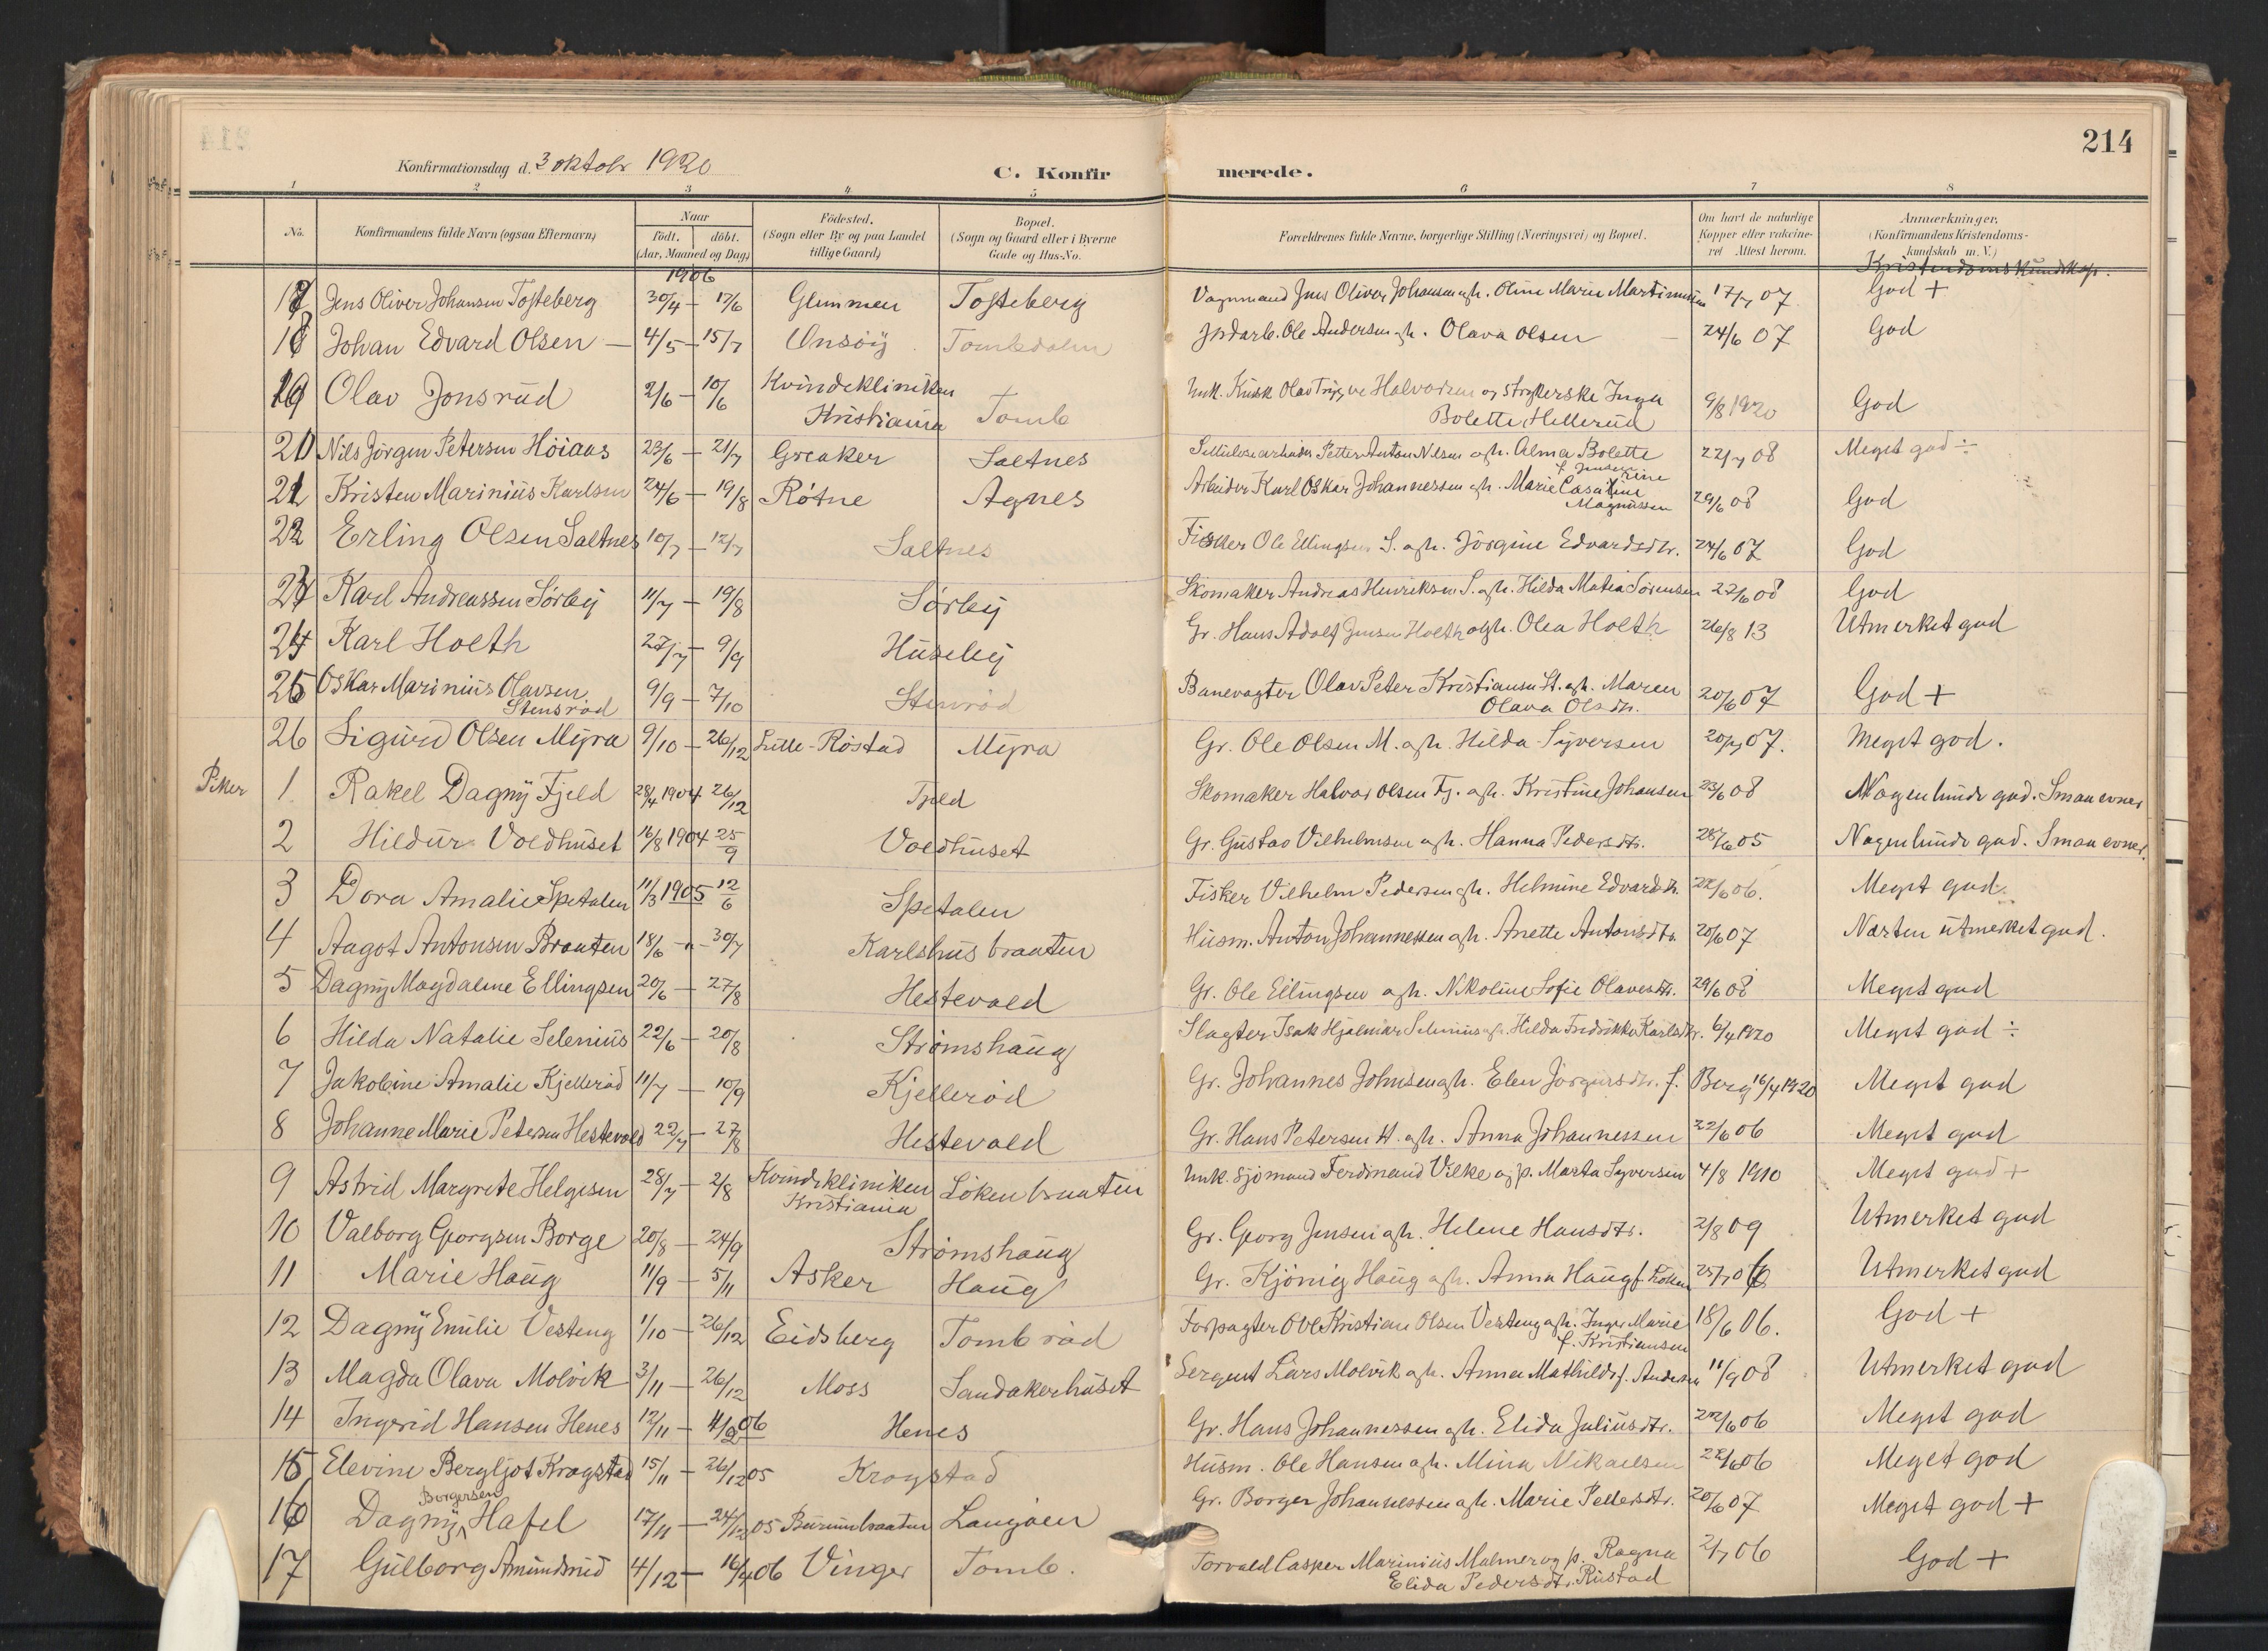 214
Konfirmationsdag d. 3 oktobr 1920
C. Konfirmerede.
1 2 3 4 5 6 7 8
No. Konfirmandens fulde Navn (ogsaa Efternavn) Naar født. døbt. (Aar, Maaned og Dag) Fødested. (Sogn eller By og paa Landet tillige Gaard) Bopæl. (Sogn og Gaard eller i Byerne Gade og Hus-No. Forældrenes fulde Navne, borgerlige Stilling (Næringsvei) og Bopæl. Om havt de naturlige Kopper eller vakcineret Attest herom. Anmærkninger. (Konfirmandens Kristendomskundskab m. V.)
1906 Kristendomskundskap.
17 Jens Oliver Johansen Tosteberg 30/4 – 17/6 Glemmen Tosteberg Vognmand Jens Oliver Johansen og h. Oline Marie Martinusen 17/7 07 God +
18 Johan Edvard Olsen – 4/5 – 15/7 Onsøy Tombdalen Jordarb. Ole Andersen og h. Olava Olsen 24/6 07 God
19 Olav Jonsrud 2/6 – 10/6 Kvindekliniken Kristiania Tomb Unk. Kusk Olav Trygve Halvorsen og strykerske Inga Bolette Hellerud 9/8 1920 God
20 Nils Jörgen Petersen Höiaas 23/6 – 21/7 Greaker Saltnes Celluloscarbeider Petter Anton Nilsen og h. Alma Bolette f. Jensen 22/7 08 Meget god ÷
21 Kristen Marinius Karlsen 24/6 – 19/8 Rötne Agnes Arbeider Karl Oskar Johannessen og h. Marie Casarine Magnussen 29/6 08 God
22 Erling Olsen Saltnes 10/7 – 12/7 Saltnes Fisker Ole Ellingsen S. og h. Jörgine Edvardsdtr. 24/6 07 God
23 Karl Andreassen Sørby 11/7 – 19/8 Sørby Skomaker Andreas Henriksen S. og h. Hilda Matea Sørensen 22/6 08 God
24 Karl Holth 27/7 – 9/9 Huseby Gr. Hans Adolf Jensen Holth og h. Olea Holth 26/8 13 Utmerket god
25 Oskar Marinius Olavsen Stensrød 9/9 – 7/10 Stenrød Banevogter Olav Peter Kristiansen St. og h. Maren Olava Olsdtr. 20/6 07 God +
26 Sigurd Olsen Myra 9/10 – 26/12 Lille-Röstad Myra Gr. Ole Olsen M. og h. Hilda Syversen 20/7 07. Meget god.
Piker 1 Rakel Dagny Fjeld 28/4 1904 26/12 Fjeld Skomaker Halvor Olsen Fj. og h. Kristine Johansen 23/6 08 Nogenlunde god. Smaa evner
2 Hildur Voldhuset 16/8 1904 25/9 Voldhuset Gr. Gustav Vilhelmsen og h. Hanna Pedersdtr. 28/6 05 Nogenlunde god. Smaa evner.
3 Dora Amalie Spetalen 11/3 1905 12/6 Spetalen Fisker Vilhelm Pedersen og h. Helmine Edvardsdtr. 22/6 06. Meget god.
4 Aagot Antonsen Braaten 18/6 –"– 30/7 Karlshusbraaten Husm. Anton Johannessen og h. Anette Antonsdtr. 20/6 07 Næsten utmerket god.
5 Dagny Magdalene Ellingsen 20/6 – 27/8 Hestevold Gr. Ole Ellingsen og h. Nikoline Sofie Olavesdtr. 29/6 08 Meget god
6 Hilda Natalie Selenius 22/6 – 20/8 Strömshaug Slagter Isak Hjalmar Selenius og h. Hilda Fredrikke Karlsdtr. 6/4 1920 Meget god ÷
7 Jakobine Amalie Kjelleröd 11/7 – 10/9 Kjelleröd Gr. Johannes Johnsen og h. Elen Jörgensdtr. f. Berg 16/4 1920 Meget god
8 Johanne Marie Petersen Hestevold 22/7 – 27/8 Hestevold Gr. Hans Petersen H. og h. Anna Johannessen 22/6 06 Meget god
9 Astrid Margrete Helgesen 28/7 – 2/8 Kvindekliniken Kristiania Lökenbraaten Unk. Sjömand Ferdinand Vilke og p. Marta Syversen 4/8 1910 Meget god +
10 Valborg Georgsen Borge 20/8 – 24/9 Strömshaug Gr. Georg Jensen og h. Helene Hansdtr. 2/8 09 Utmerket god
11 Marie Haug 11/9 – 5/11 Asker Haug Gr. Kjönig Haug og h. Anna Haug f. 25/7 06 Utmerket god
12 Dagny Emilie Vesteng 1/10 – 26/12 Eidsberg Tombröd Forpagter Ole Kristian Olsen Vesteng og h. Inger Marie f. Kristiansen 18/6 06. God +
13 Magda Olava Molvik 3/11 – 26/12 Moss Sandakerhuset Sergent Lars Molvik og h. Anna Mathilde f. Andersen 11/9 08 Utmerket god
14 Ingerid Hansen Henes 12/11 – 4/2 06 Henes Gr. Hans Johannessen og h. Elida Juliusdtr. 22/6 06 Meget god
15 Elevine Bergljot Krogstad 15/11 – 26/12 05 Krogstad Husm. Ole Hansen og h. Mina Mikaelsen 22/6 06 Meget god
16 Dagny Borgersen Hafel 17/11 – 24/12 05 Langøen Gr. Borger Johannessen og h. Marie Pettersdtr. 20/6 07 Meget god +
17 Gulborg Amundsrud 4/12 – 16/4 06 Vinger Tomb. Torvald Casper Marinius Malmer og p. Ragna Elida Pedersdtr. Rustad 2/7 06 God +